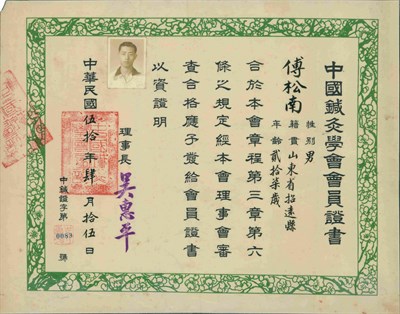 中國鍼灸學會會員證書
傅松南
性別 男
籍貫 山東省招遠縣
年齡 貳拾柒歲
合於本會章程第三章第六
條之規定經本會理事會審
查合格應予發給會員證書
以資證明
理事長 吳惠平
中華民國伍拾年肆月拾伍日
中鍼證字第 0083 號